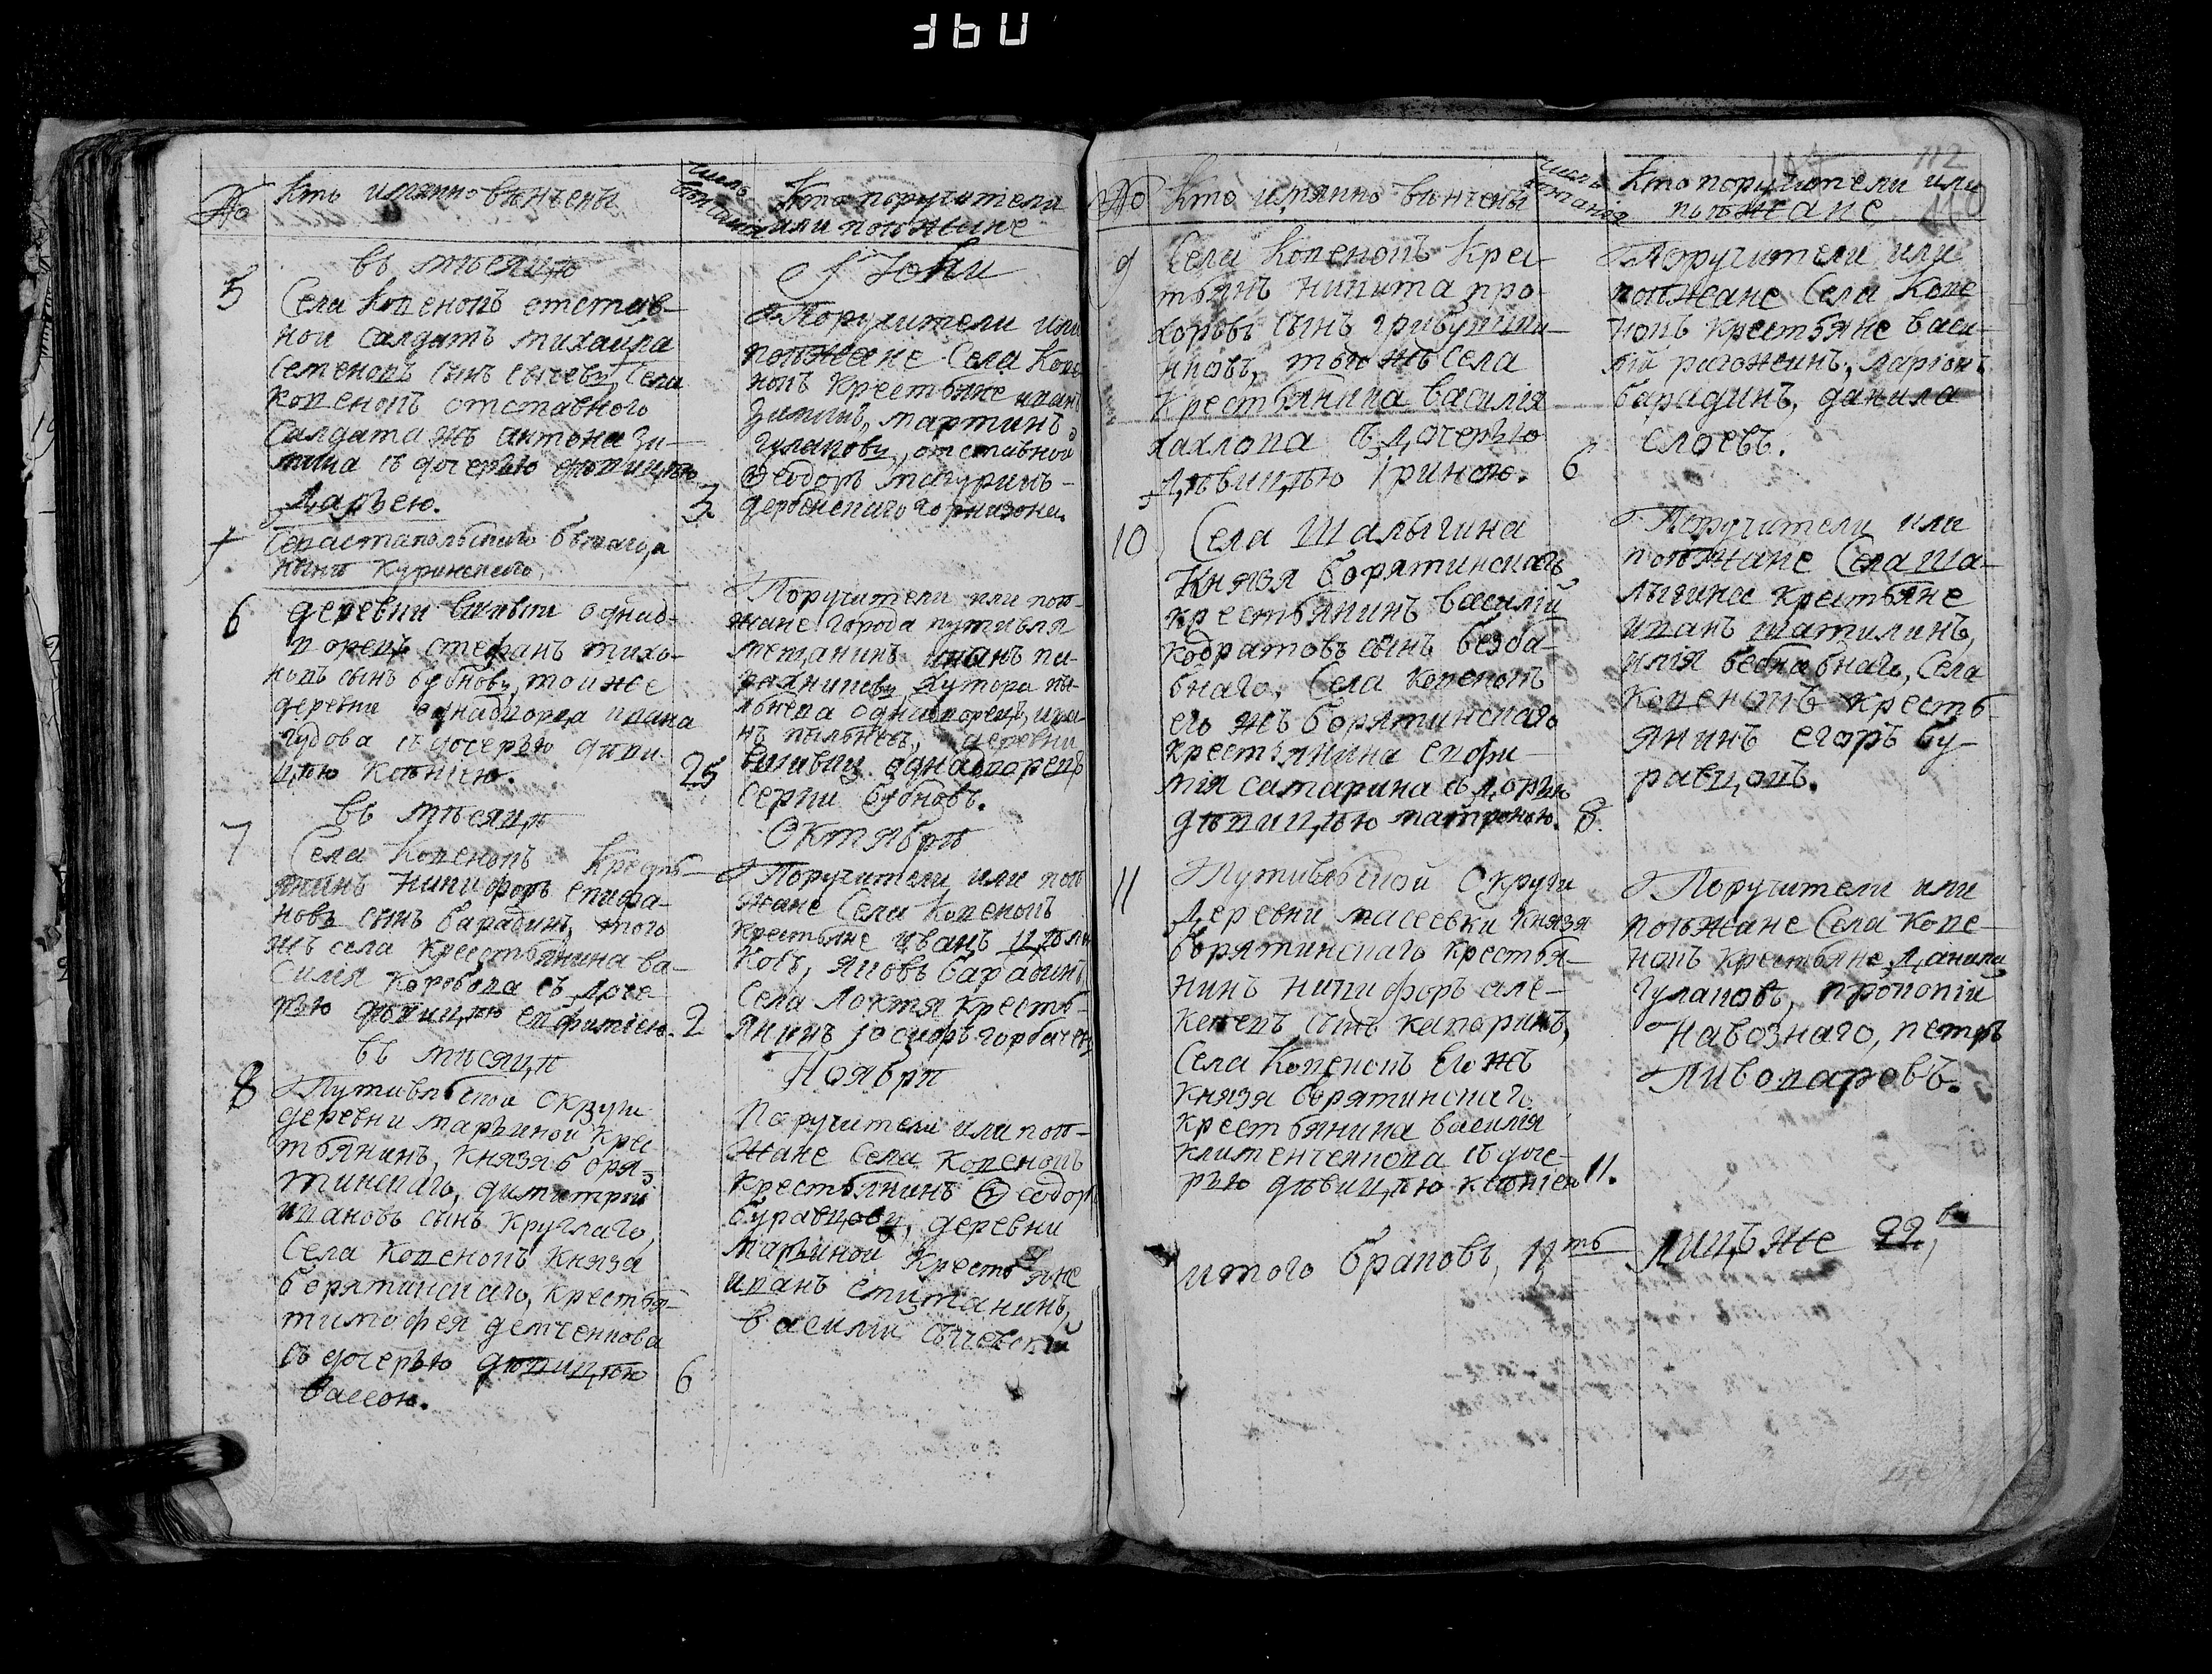 360
№
Кто имянно венчены
число
бракамъ
Кто поручители
или поѣзжане
въ мѣсяцѣ
Іюни
5
Села Копенокъ отстав-
ной салдатъ михаила
Семеновъ сынъ сычевъ, Села
копенокъ отставного
Салдата жъ антона зи-
мина съ дочерью дѣвицѣю
Дарьею.
3.
Поручители или
поѣзжане Села Копе
нокъ крестьяне иванъ
зиминъ, мартинъ
гулаковъ, отставной
Ѳеодоръ
дербенскаго горнизона.
+
Севастапольскаго
6
деревни однад-
ворецъ стефанъ тихо-
новъ сынъ бубновъ, тоиже
деревни однадворца ивана
гудова съ дочерью дѣви-
цѣю Ксѣніею.
25
Поручители или поѣ-
жане города путивля
мещанинъ иванъ пи-
хутора пы-
однадворецъ, ива-
нъ деревни
однадворецъ
Сергии бубновъ.
въ мѣсяцѣ
Октябрѣ
7
Села Копенокъ Кресть-
янинъ Никифоръ епифа-
новъ сынъ барадинъ, того
жъ села крестьянина ва-
силія Коробова съ доче-
рью дѣвицѣю евфиміею.
2
Поручители или поѣ
жане Села Копенокъ
крестьяне иванъ
яковъ барадинъ
Села Локтя кресть-
янинъ горбачевъ
въ мѣсяцѣ
Ноябрѣ
8
Путивльской округи
деревни марьиной крес
тьянинъ, князя боря-
тинскаго, димитрий
ивановъ сынъ круглаго,
Села копенокъ князя
борятинскаго, крестья-
тимофея демченкова
съ дочерью дѣвицѣю
вассою.
6
Поручители или поѣ-
жане Села Копенокъ
крестьянинъ Ѳеодоръ
буравцовъ, деревни
марьиной крестьяне
иванъ
василии сычевский
№
Кто имянно венчены
число
Кто поручители или
поѣзжане
112
110
9
Села Копенокъ Крес-
тьянъ никита про-
хоровъ сынъ
тоюжъ села
крестьянина василія
хахлова съ дочерью
дѣвицѣю Іриною.
6
Поручители или
поѣзжане Села Копе
нокъ крестьяне васи-
лій рагожинъ, ларіонъ
барадинъ, данила
слоевъ.
10
Села Шалыгина
Князя борятинскаго
крестьянинъ василій
кодратовъ сынъ безба-
бнаго, Села копенокъ
его жъ борятинскаго
крестьянина евфи-
мія сатарина съ дочрью
дѣвицѣю матроною.
8.
Поручители или
поѣзжане Села Ша-
лыгина крестьяне
иванъ шатилинъ,
илія безбабнаго, Села
Копенокъ кресть-
янинъ егоръ бу-
равцовъ.
11
Путивльской округи
деревни князя
борятинскаго крестья-
нинъ никифоръ але-
ксеевъ сынъ
Села Копенокъ его жъ
князя борятинскаго
крестьянина василія
съ доче-
рью дѣвицѣю ксѣніею
11.
Поручители или
поѣзжане Села копе-
нокъ крестьяне данила
гулаковъ, прокопій
навознаго, петръ
Пивоваровъ.
итого браковъ, 11ть лицъ же 22,